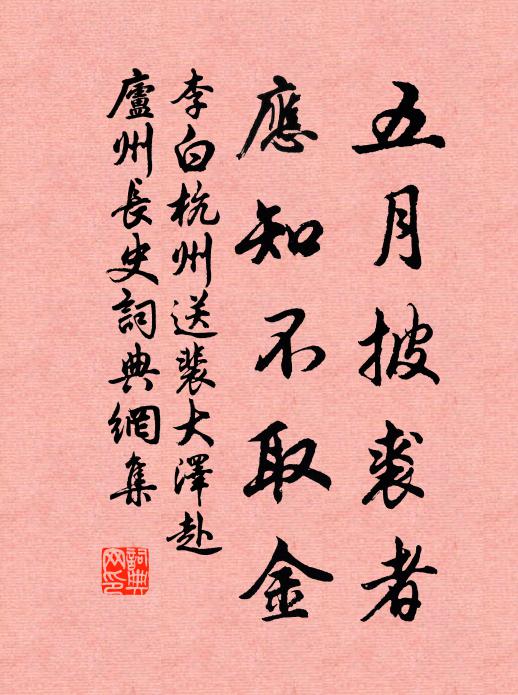 五月披裘者
應知不取金
李白杭州送裴大澤赴
廬州長史詞典網集
詞典網印